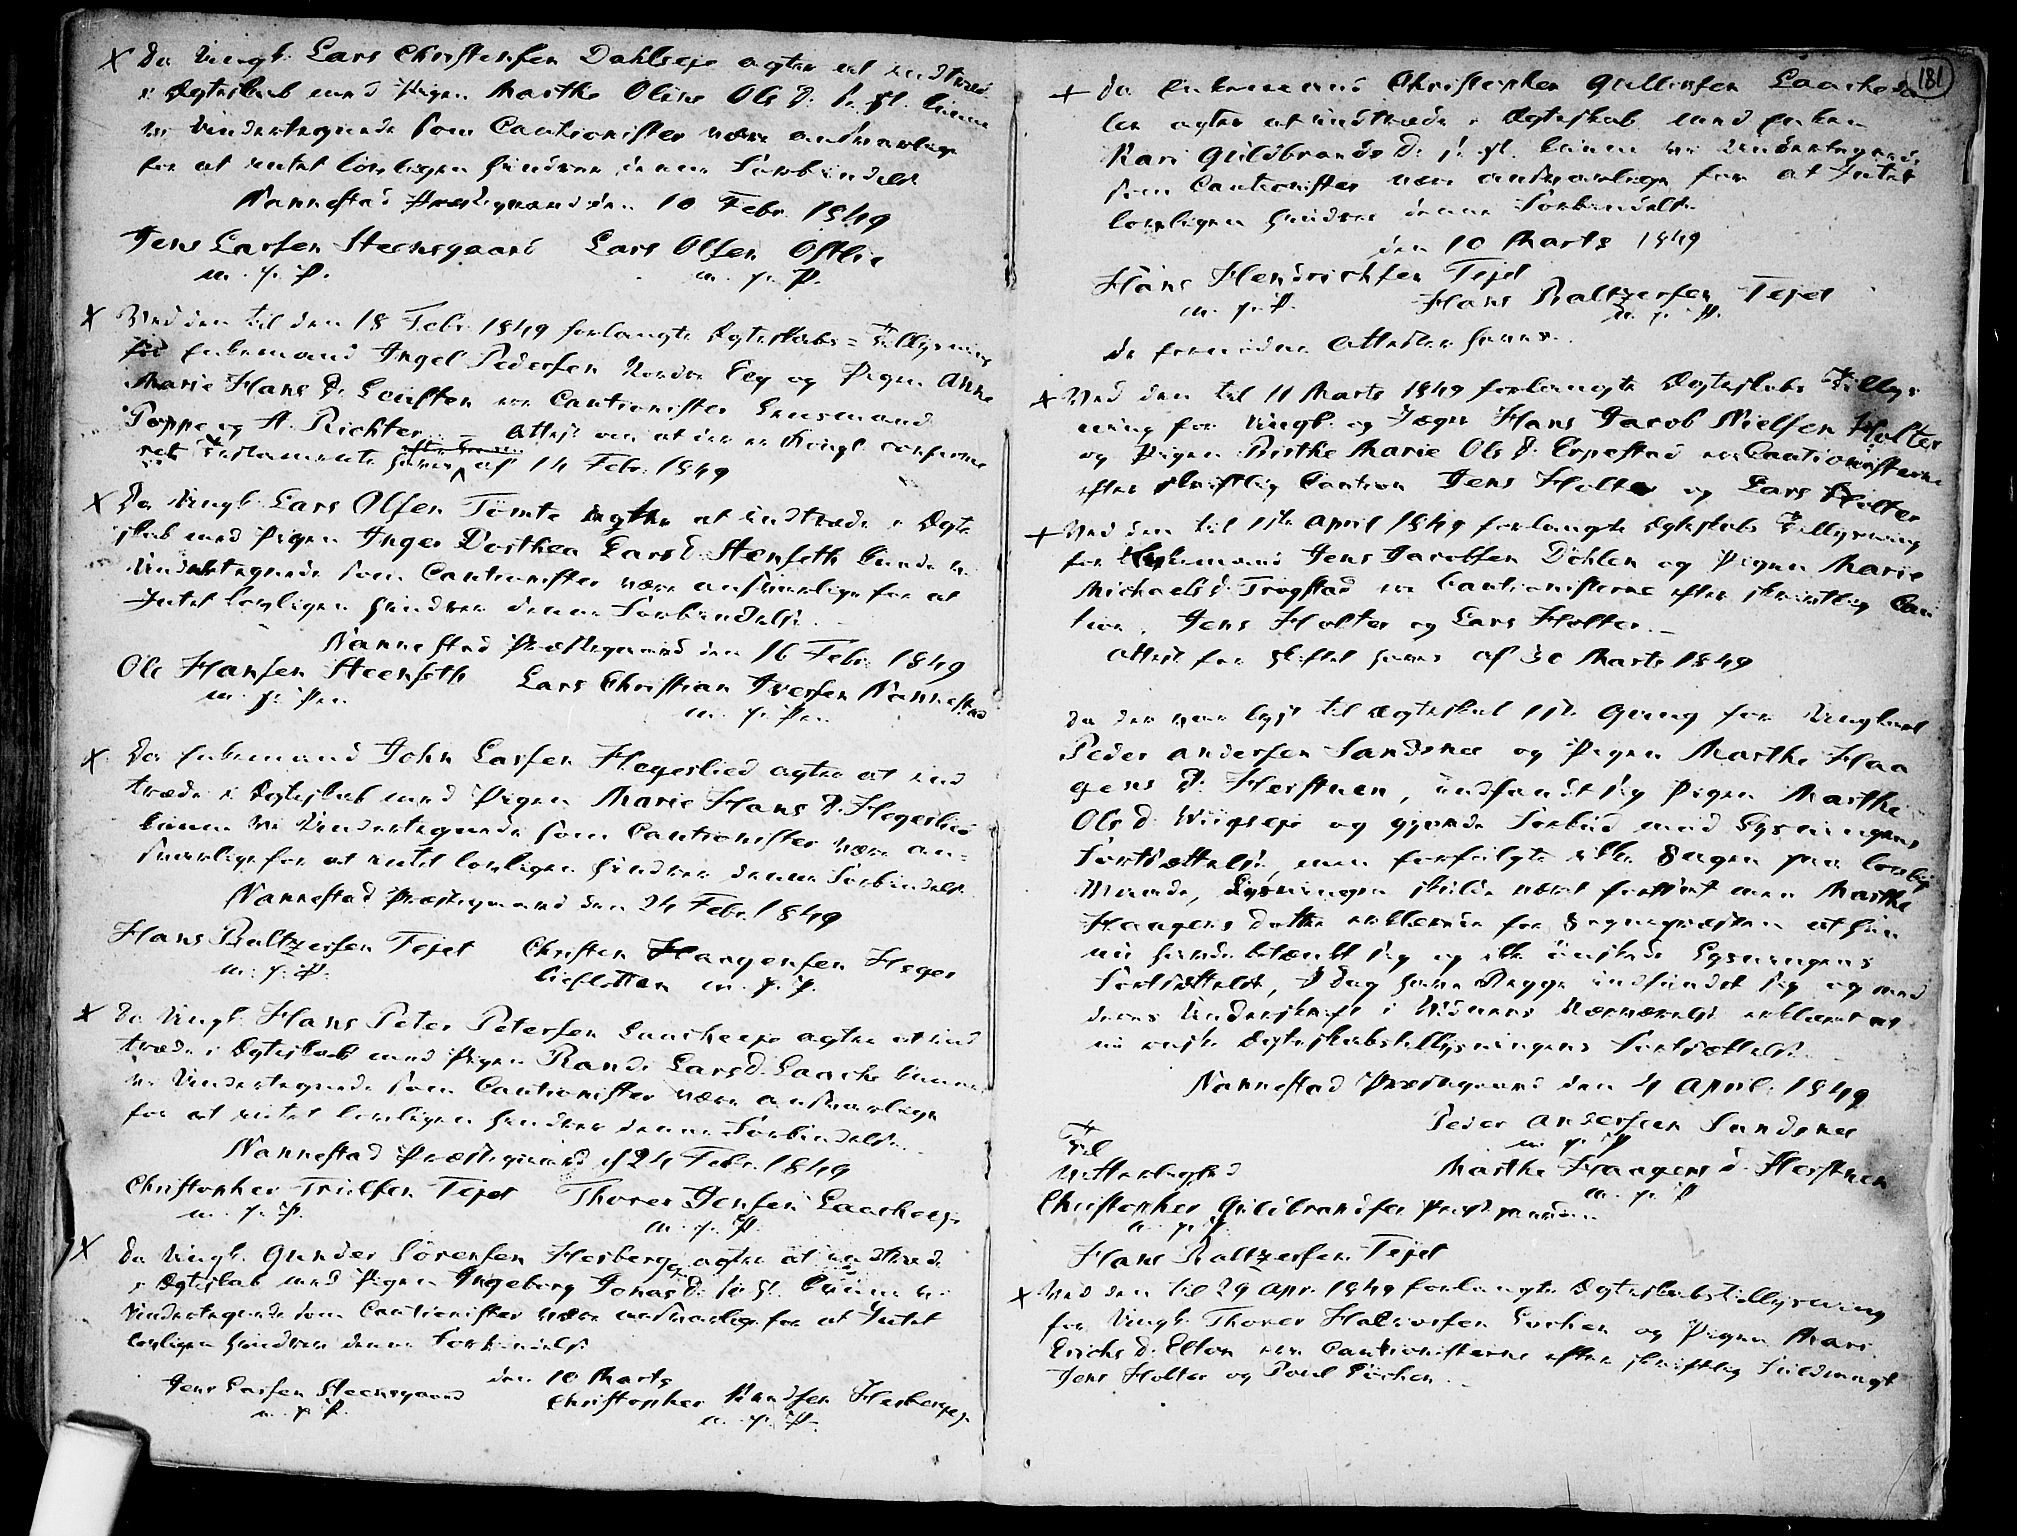 × Da Ungk. Lars Christensen Dahlseje agter at indtræde
i Ægteskab med Pigen Marthe Oline Ols D.
vi Undertegnede som Cautionister være ansvarlige
for at intet lovligen hindrer denne Forbindelse
Nannestad Præstegaard den 10 Febr. 1849
Jens Larsen Steensgaard Lars Olsen Ostlie
m. p. P. m. p. P.
× Ved den til den 18 Febr. 1849 forlangte Ægteskabs-Tillysning
for Enkemand Ingel Pedersen Nordre Eeg og Pigen Anne
Marie Hans D. ere Cautionister Lensmand
Poppe og A. Richter. – Attest om at der er Kongl. confirme
ret Testamente haves af 14 Febr. 1849
× Da Ungk. Lars Olsen Tømte agter at indtræde i Ægte
skab med Pigen Inger Dorthea Lars D. Stenseth kunde vi
Undertegnede som Cautionister være ansvarlige for at
Intet lovligen hindrer denne Forbindelse. –
Nannestad Præstegaard den 16 Febr. 1849
Ole Hansen Steenseth Lars Christian Iversen Nannestad
m. p. Pen m. p. Pen
× Da Enkemand John Larsen Hegerlied agter at ind
træde i Ægteskab med Pigen Marie Hans D. Hegerlied
kunne vi Undertegnede som Cautionister være an=
svarlige for at intet lovligen hindrer denne Forbindelse
Nannestad Præstegaard den 24 Febr. 1849
Hans Baltzersen Tejet Christen Haagensen Heger
m. p. P. lieslotten m. p. P.
× Da Ungk. Hans Peter Petersen Laacheeje agter at ind
træde i Ægteskab med Pigen Rande Lars D. Laache kunne
vi Undertegnede som Cautionister være ansvarlige
for at intet lovligen hindrer denne Forbindelse. –
Nannestad Præstegaard d 24 Febr. 1849
Christopher Trulsen Tejet Thorer Jensen Laacheeje
m. p. P. m. p. P.
× Da Ungk. Gunder Sørensen Herberg agter at indtræde
i Ægteskab med Pigen Ingeborg Jonas D. kunne vi
Undertegnede som Cautionister være ansvarlige for at Intet
lovligen hindrer denne Forbindelse
den 10 Marts
Jens Larsen Steensgaard Christopher Knudsen Herbergeje
m. p. P. m. p. P.
181
+ Da Enkemand Christopher Gulliksen
agter at indtræde i Ægteskab med Enken
Kari Guldbrands D. kunne vi Undertegnede
som Cautionister være ansvarlige for at Intet
lovligen hindrer denne Forbindelse
den 10 Marts 1849
Hans Hendrichsen Tejet
m. p. P. Hans Baltzersen Tejet
m. p. P.
De fornødne Attester haves.
× Ved den til 11 Marts 1849 forlangte Ægteskabs Tillys
ning for Ungk. og Jæger Hans Jacob Nielsen Holter
og Pigen Birthe Marie Ols D. Erpestad ere Cautionisterne
efter skriftlig Caution Jens Holter og Lars Holter
+ Ved den til 1ste April 1849 forlangte Ægteskabs Tillysning
for Enkemand Jens Jacobsen Döhlen og Pigen Marie
Michaels D. Trøgstad ere Cautionisterne efter skriftlig Cau
tion, Jens Holter og Lars Holter. –
Attest for Skiftet haves af 30 Marts 1849
Da der var lyst til Ægteskab 1ste Gang for Ungkarl
Peder Andersen Sandsnes og Pigen Marthe Haa
gens D. Herstuen, indfandt sig Pigen Marthe
Ols D. Wiigseje og gjorde Forbud mod Lysningens
Fortsættelse, men forfulgte ikke Sagen paa lovlig
Maade, Lysningen skulde været fortsat men Marthe
Haagens datter erklærede for Sognepræsten at hun
nu havde betænkt sig og ikke ønskede Lysningens
Fortsættelse, I Dag have Begge indfundet sig og med
deres Underskrift i Vidners Nærværelse erklæret at
nu ønske Ægteskabstillysningens Fortsættelse. –
Nannestad Præstegaard den 4 April 1849
Peder Andersen Sandsnes
m. p. P
Til
Vitterlighed Marthe Haagens D. Herstuen
m. p. P
Christopher Guldbrandsen Præstegaarden
m. p. P.
Hans Baltzersen Tejet
× Ved den til 29 Apr. 1849 forlangte Ægteskabstillysning
for Ungk. Thorer Halvorsen og Pigen Mari
Erichs D. Elton ere Cautionisterne efter skriftlig Fuldmagt
Jens Holter og Poul